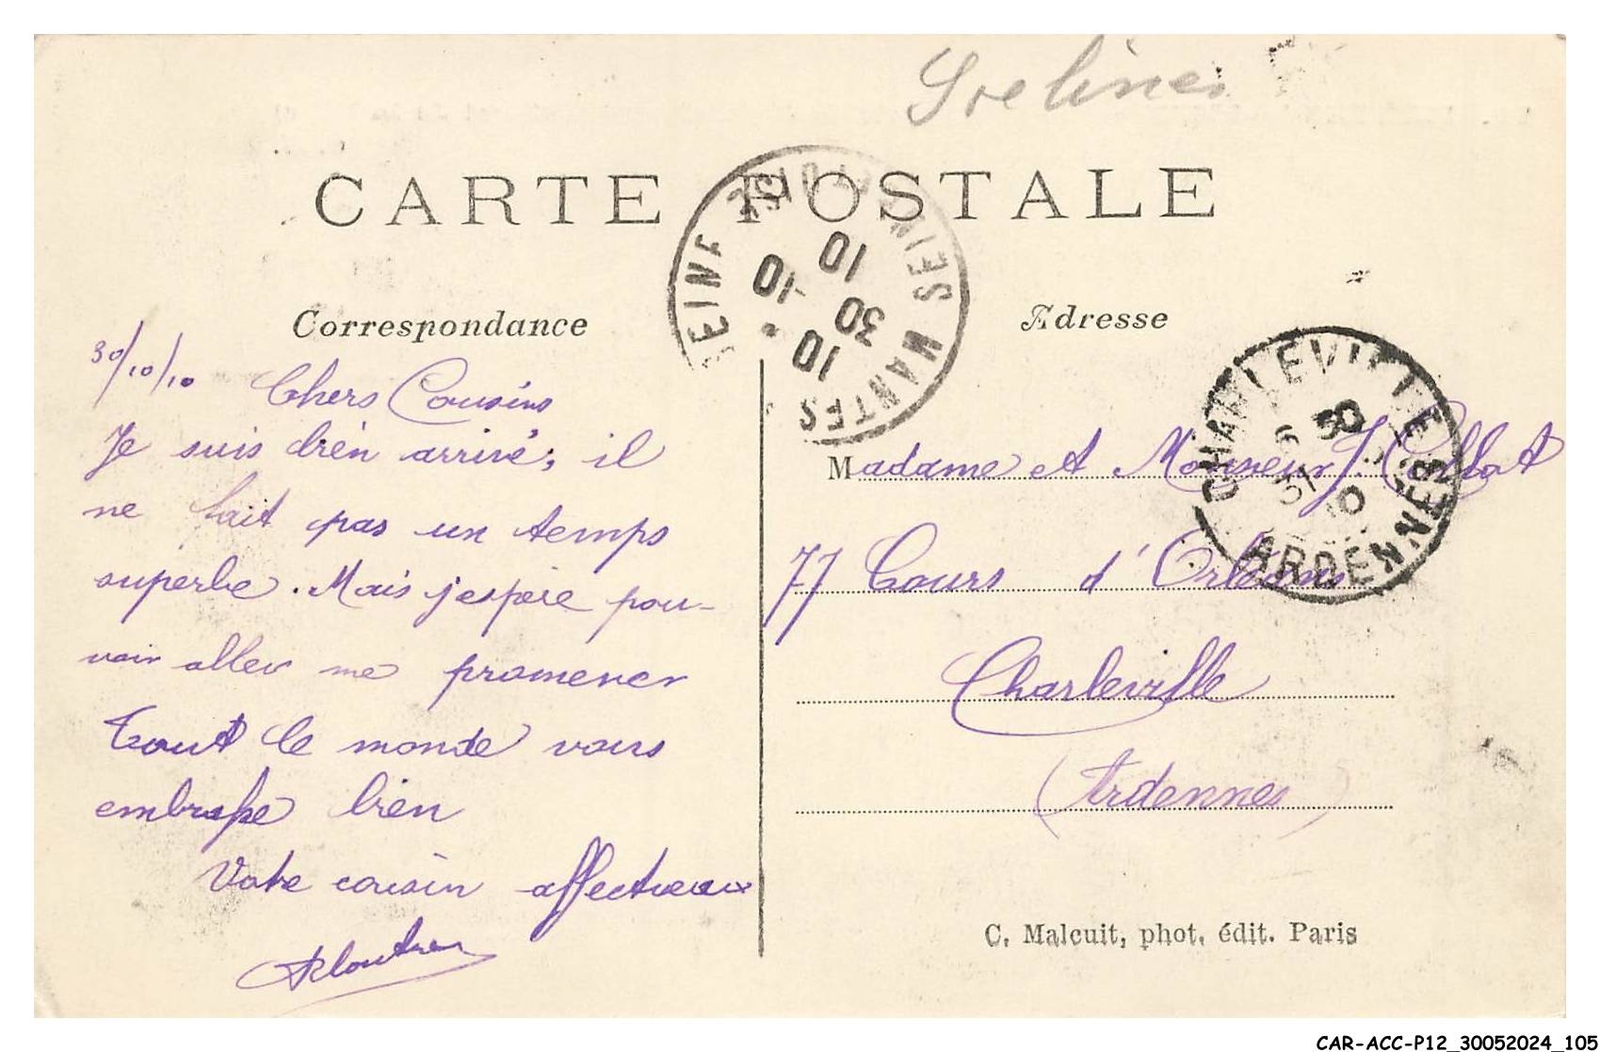 CARTE POSTALE
Correspondance
Adresse
30/10/10
Chers Cousins
Je suis bien arrivé, il
ne fait pas un temps
superbe. Mais j'espère pou-
voir aller me promener
Tout le monde vous
embrasse bien
Votre cousin affectueux
Madame et Monsieur J
77 Cours d'Orléans
Charleville
(Ardennes)
C. Malcuit, phot. édit. Paris
MANTES
SEINE
10
10 -10
30
10
CHARLEVILLE
ARDENNES
CAR-ACC-P12_30052024_105